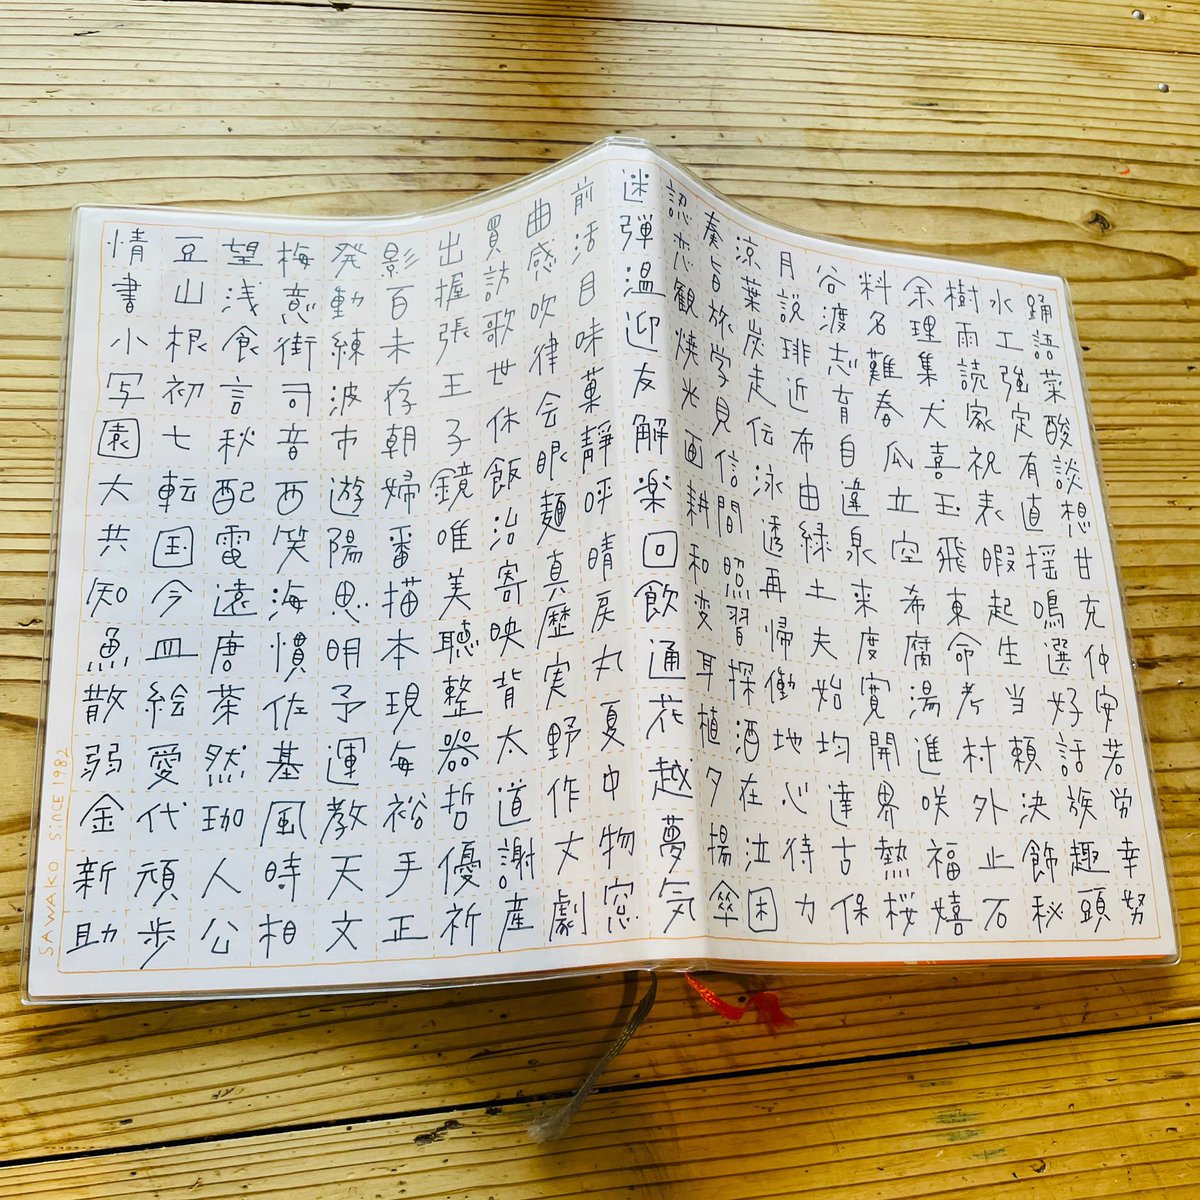 踊語菜酸談想甘充仲安若労幸努
水工強定有直揺鳴選好話族趣頭
樹雨読家祝表暇起生当頼決飾秘
余理集犬喜玉飛東命考村外止石
料名難春瓜立空希腐湯進咲福嬉
谷渡志育自違泉来度寛開界熱桜
月説琲近布由緑土夫始均達古保
涼葉炭走伝泳透再帰働地心待力
奏旨旅学見信間照習探酒在泣困
認恋観焼光画耕和変耳植夕揚傘
迷弾温迎友解楽回飲通花越夢気
前活目味菓静呼晴戻丸夏中物窓
曲感吹律会眼麺真歴実野作丈劇
買訪歌世休飯治寄映背太道謝産
出握張王子鏡唯美聴整器哲優祈
影百未存朝婦番描本現毎裕手正
発動練波市遊陽思明予運教天文
梅意街司音西笑海慣佐基風時相
望浅食言秋配電遠唐茶然珈人公
豆山根初七転国今皿絵愛代頑歩
情書小写園大共知魚散弱金新助
SAWAKO SINCE 1982